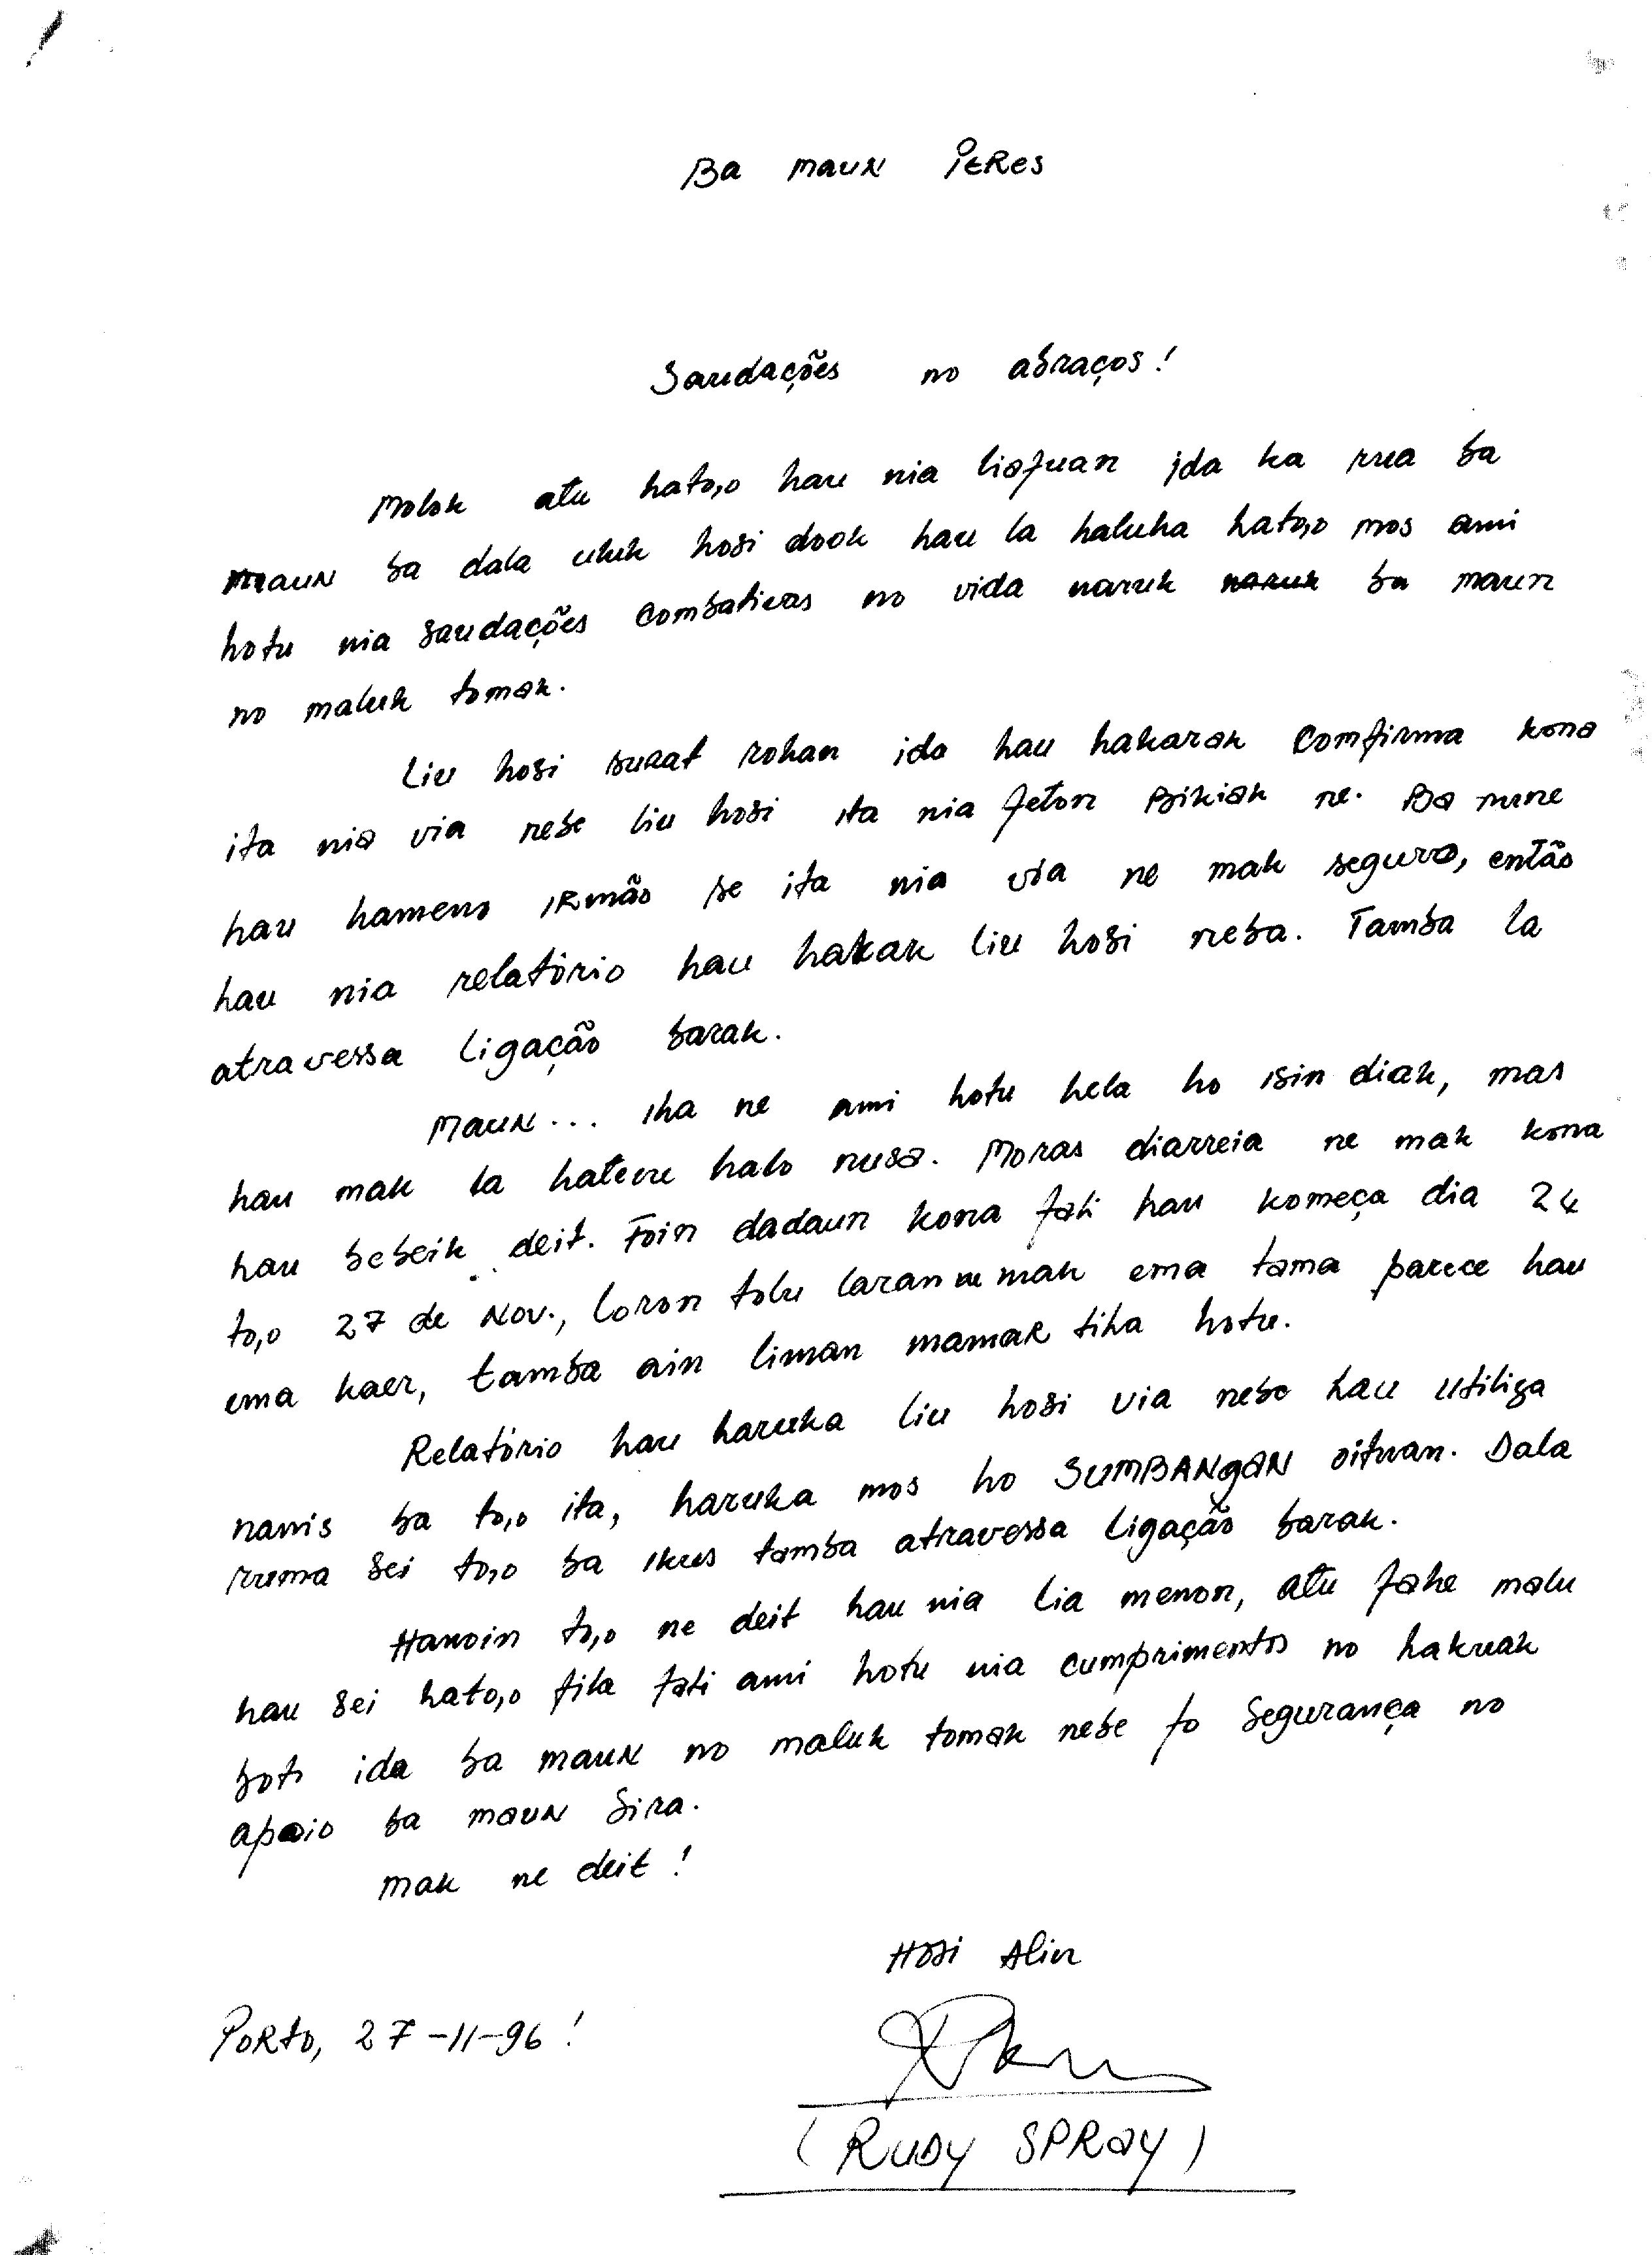 Ba maun PERes
Saudações no abraços!
Molok atu hato,o hau nia liafuan ida ka rua ba
maun ba dala uluk hosi dook hau la haluha hato,o mos ami
hotu nia saudações combativas no vida naruk naruk ba maun
no maluk tomak.
Liu hosi surat rohan ida hau hakarak comfirma kona
ita nia via nebe liu hosi ita nia feton Bikiak ne. Ba nune
hau hameno IRmão se ita nia via ne mak seguro, então
hau nia relatório hau hakak liu hosi neba. Tamba la
atravessa ligação barak.
Maun... iha ne ami hotu hela ho isin diak, mas
hau mak la hatene halo nusa. Moras diarreia ne mak kona
hau bebeik deit. Foin dadaun kona fali hau komeça dia 24
to,o 27 de Nov., loron tolu laran ne mak ema tama parece hau
ema kaer, tamba ain liman mamar tiha hotu.
Relatório hau haruka liu hosi via nebe hau utiliza
nanis ba to,o ita, haruka mos ho SUMBANgAN oituan. Dala
ruma sei to,o ba ikus tamba atravessa ligação barak.
Hanoin to,o ne deit hau nia lia menon, atu fahe malu
hau sei hato,o fila fali ami hotu nia cumprimentos no hakuak
boti ida ba maun no maluk tomak nebe fo segurança no
apoio ba maun sira.
mak ne deit!
Hosi Alin
PORto, 27-11-96!
(RUDy SPRay)